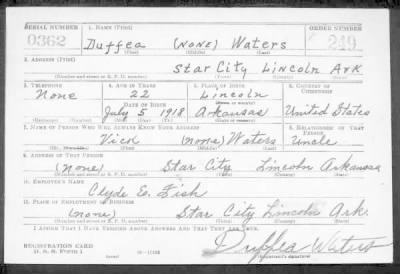 SERIAL NUMBER 1. NAME (Print) ORDER NUMBER
0362 Duffea (NONE) Waters 249
(First) (Middle) (Last)
2. ADDRESS (Print)
Star City Lincoln Ark
(Number and street or R. F. D. number) (Town) (County) (State)
3. TELEPHONE 4. AGE IN YEARS 5. PLACE OF BIRTH 6. COUNTRY OF CITIZENSHIP
None 22 Lincoln
DATE OF BIRTH (Town or county)
July 5 1918 Arkansas United States
(Exchange) (Number) (Mo.) (Day) (Yr.) (State or country)
7. NAME OF PERSON WHO WILL ALWAYS KNOW YOUR ADDRESS 8. RELATIONSHIP OF THAT PERSON
Vick (none) Waters Uncle
(First) (Middle) (Last)
9. ADDRESS OF THAT PERSON
(none) Star City Lincoln Arkansas
(Number and street or R. F. D. number) (Town) (County) (State)
10. EMPLOYER'S NAME
Clyde E. Fish
11. PLACE OF EMPLOYMENT OR BUSINESS
(none) Star City Lincoln Ark.
(Number and street or R. F. D. number) (Town) (County) (State)
I AFFIRM THAT I HAVE VERIFIED ABOVE ANSWERS AND THAT THEY ARE TRUE.
REGISTRATION CARD
D. S. S. Form 1 Duffea Waters
(Registrant's signature)